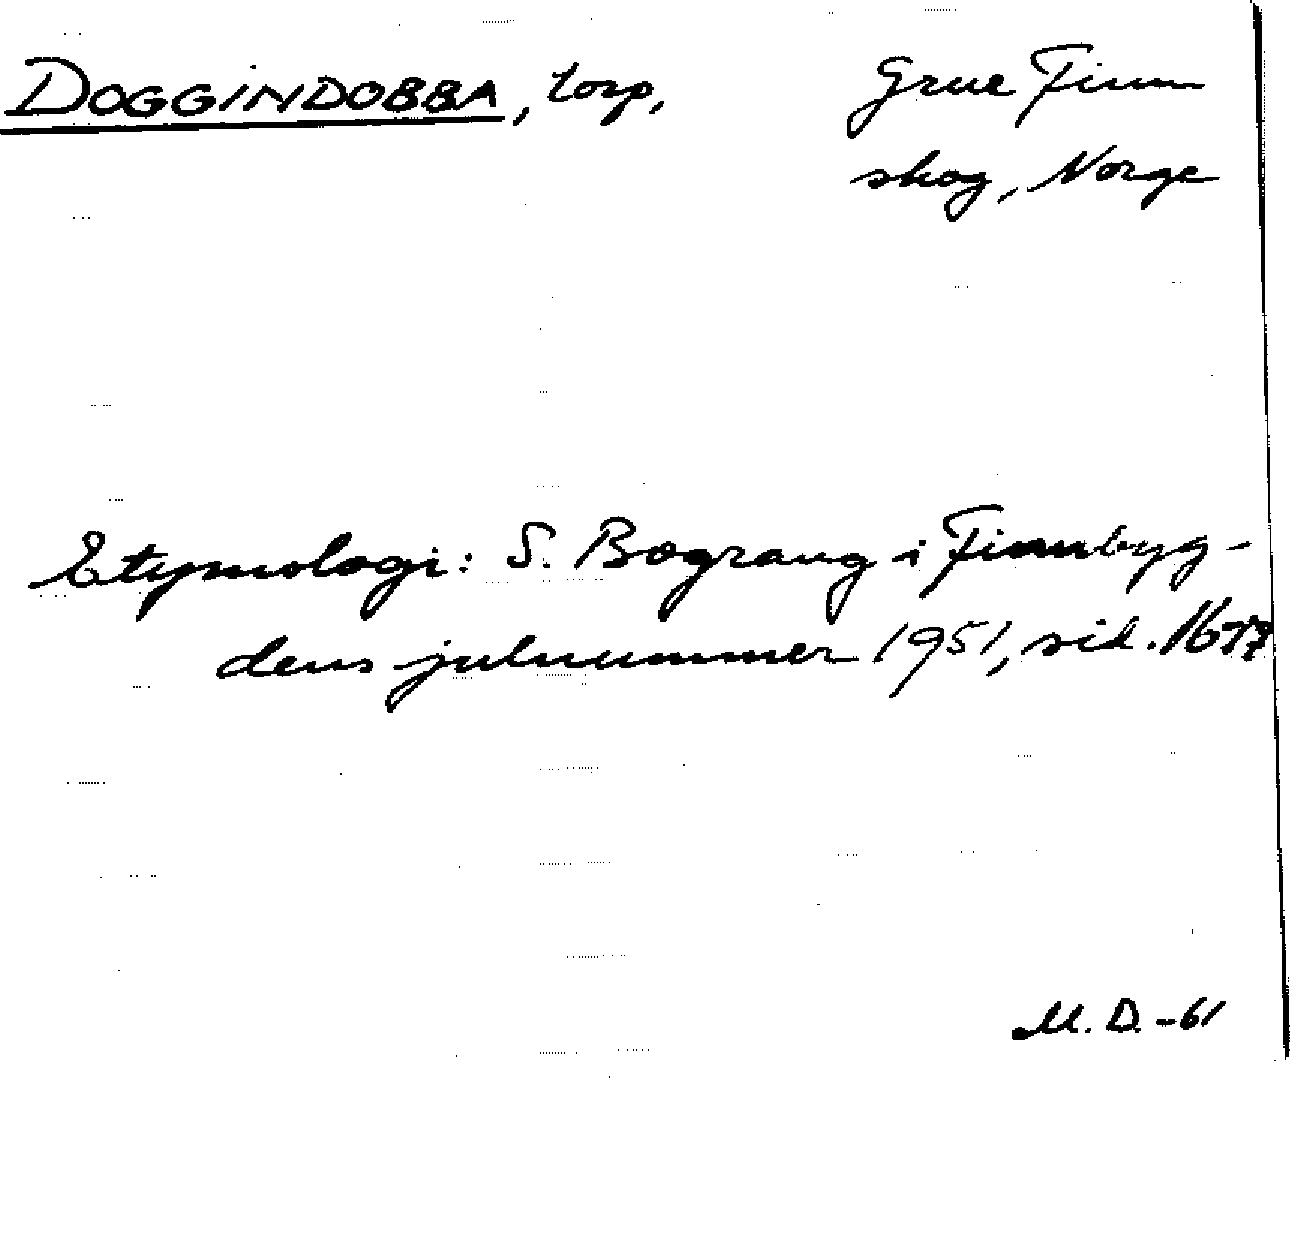 DOGGINDOBBA, torp, Grue Finn
skog, Norge
Etymologi: S. Bograng i Finnbyg-
dens julnummer 1951, sid.
M. D. -61